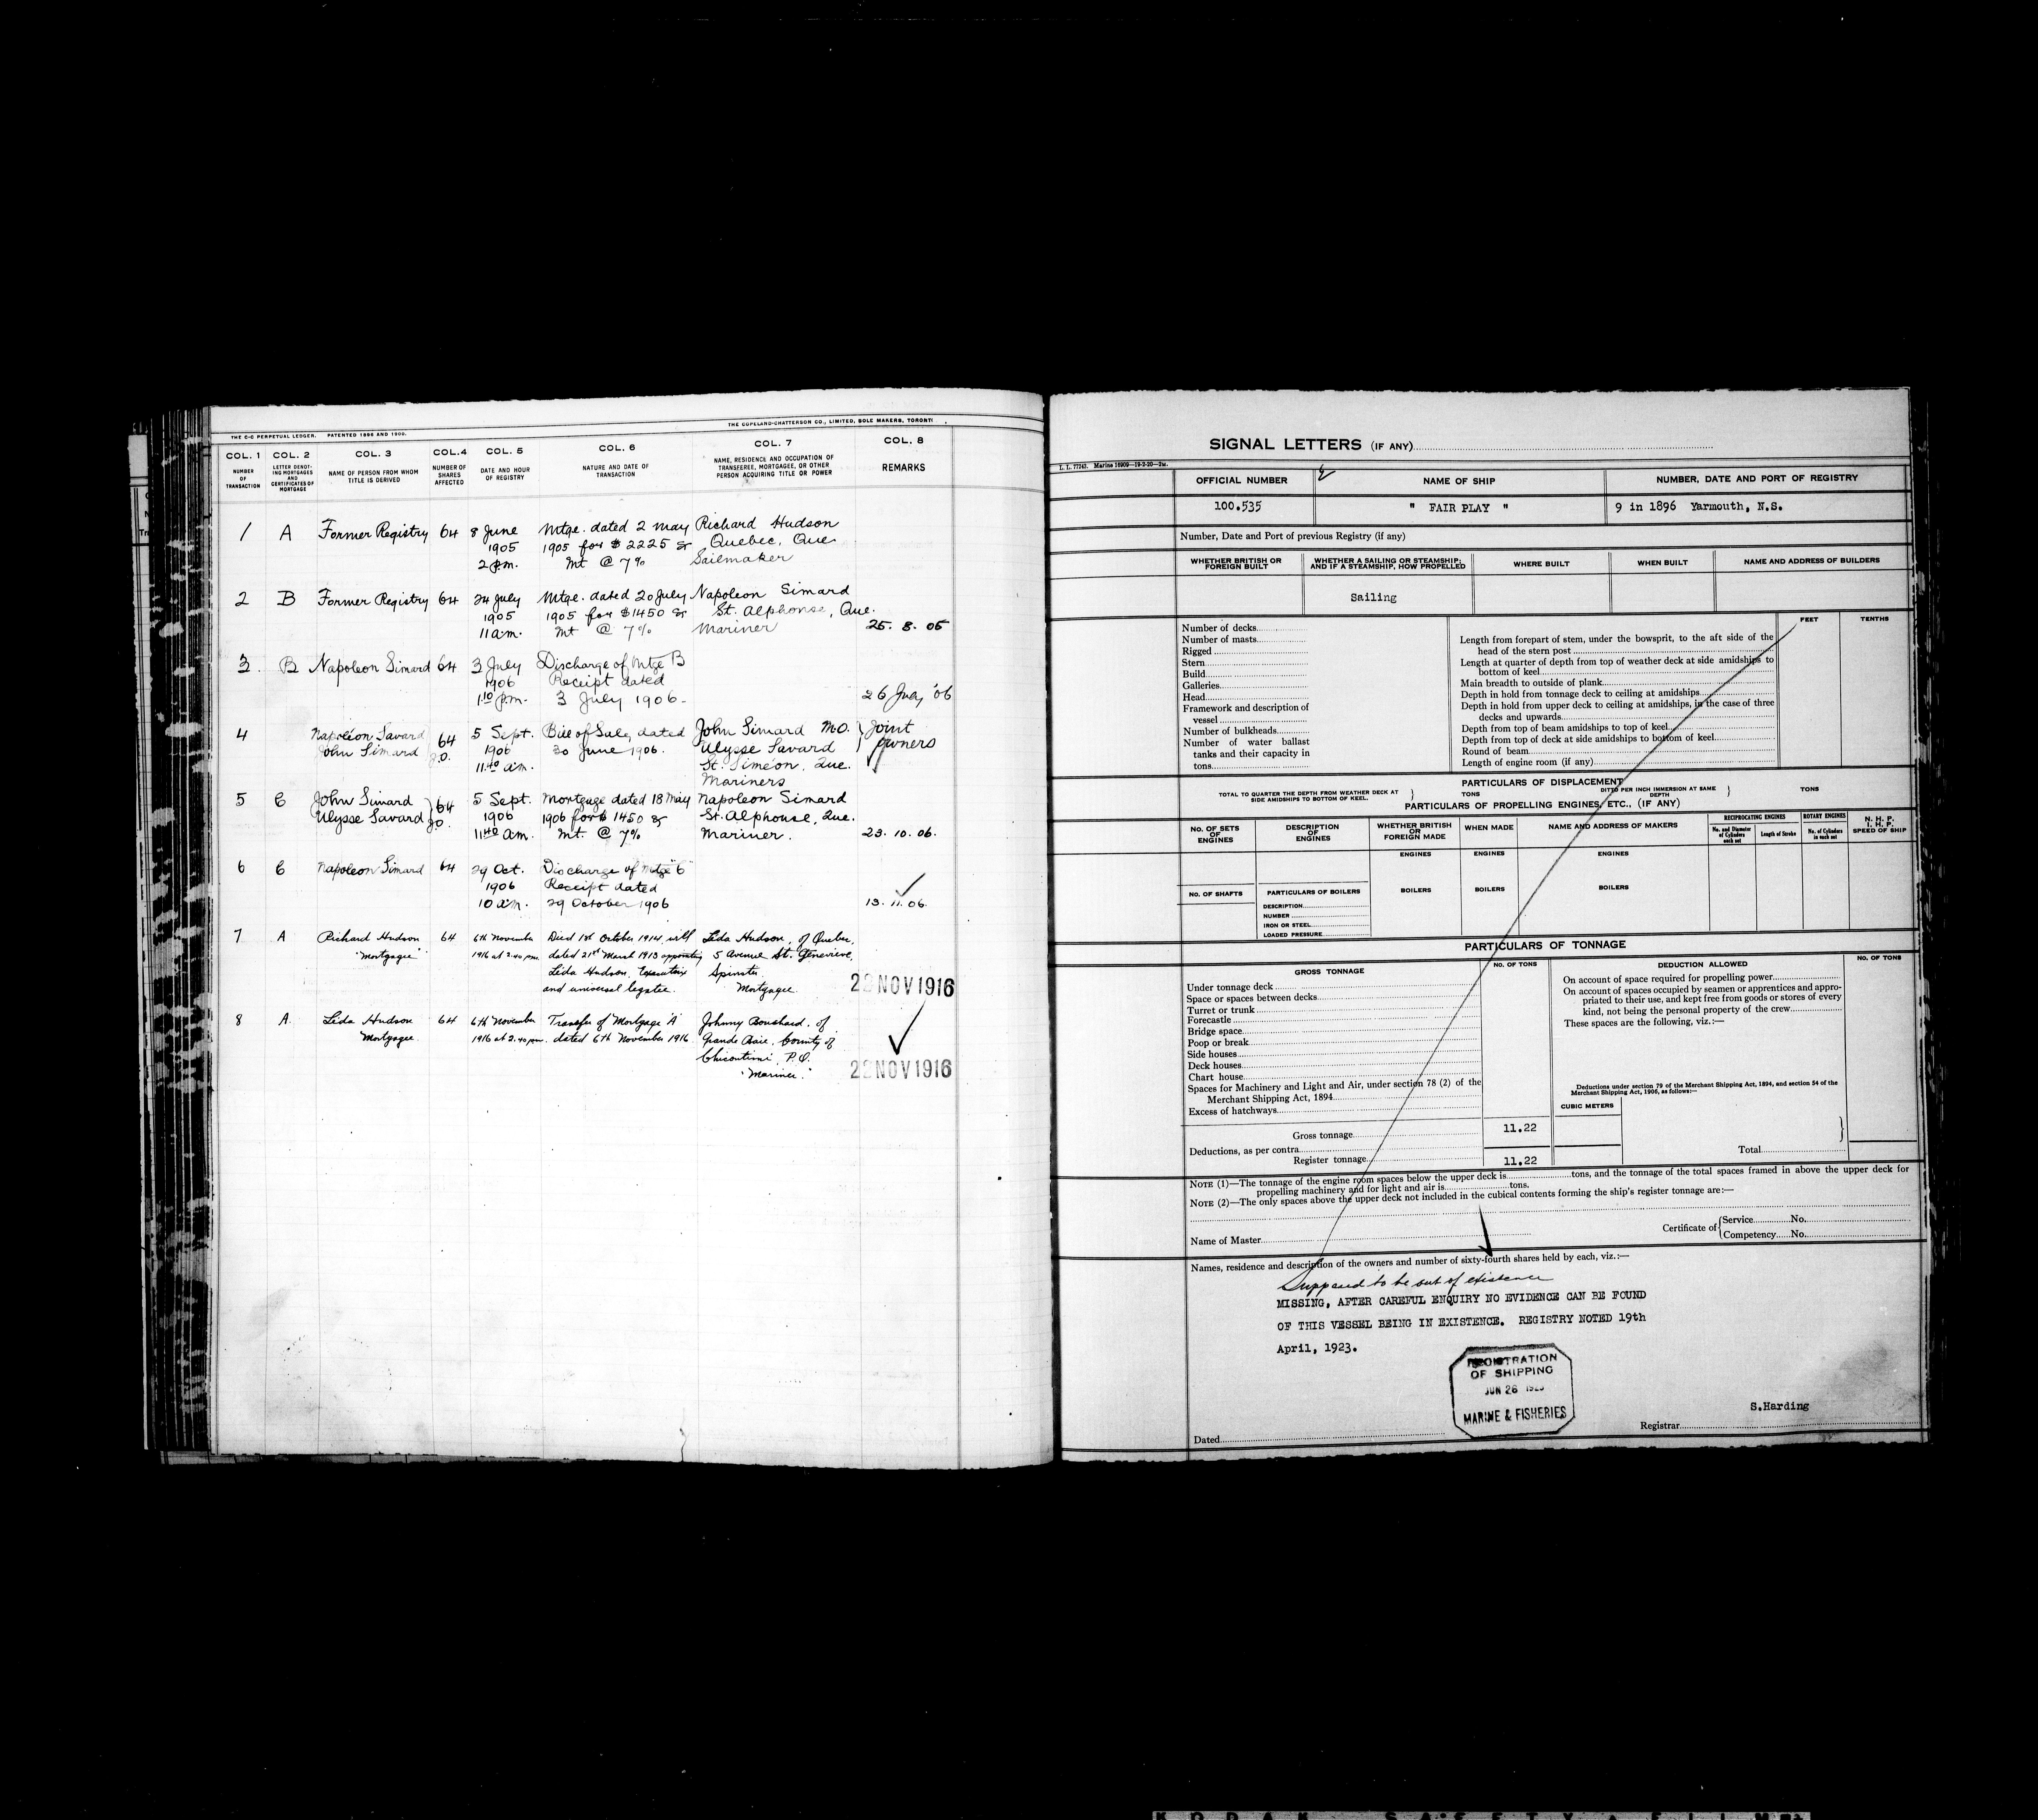 THE C-C PERPETUAL LEDGER. PATENTED 1896 AND 1900.
THE COPELAND-CHATTERSON CO., LIMITED, SOLE MAKERS, TORONTO
COL. 1 COL. 2 COL. 3 COL. 4 COL. 5 COL. 6 COL. 7 COL. 8
NUMBER OF TRANSACTION
LETTER DENOTING MORTGAGES AND CERTIFICATES OF MORTGAGE
NAME OF PERSON FROM WHOM TITLE IS DERIVED
NUMBER OF SHARES AFFECTED
DATE AND HOUR OF REGISTRY
NATURE AND DATE OF TRANSACTION
NAME, RESIDENCE AND OCCUPATION OF TRANSFEREE, MORTGAGEE, OR OTHER PERSON ACQUIRING TITLE OR POWER
REMARKS
1 A Former Registry 64 8 June Mtge. dated 2 May Richard Hudson
1905 1905 for $2225 & Quebec, Que
2 p.m. Int @ 7% Sailmaker
2 B Former Registry 64 24 July Mtge. dated 20 July Napoleon Simard
1905 1905 for $1450 & St. Alphonse, Que.
11 a.m. Int @ 7% Mariner 25. 8. 05
3. B Napoleon Simard 64 3 July Discharge of Mtge B
1906 Receipt dated
1.10 p.m. 3 July 1906. 26 July '06
4 Napoléon Savard 64 5 Sept. Bill of Sale, dated John Simard M.O. } Joint
John Simard J.O. 1906 30 June 1906. Ulysse Savard owners
11.40 a.m. St. Siméon, Que.
Mariners
5 C John Simard } 64 5 Sept. Mortgage dated 18 May Napoleon Simard
Ulysse Savard J.O. 1906 1906 for $1450 & St. Alphonse, Que.
11.40 a.m. Int. @ 7% Mariner. 23. 10. 06.
6 C Napoleon Simard 64 29 Oct. Discharge of Mtge "C"
1906 Receipt dated
10 a.m. 29 October 1906 13. 11. 06.
7 A Richard Hudson 64 6th November Died 1st October 1914, will Leda Hudson, of Quebec,
"Mortgagee" 1916 at 2.40 p.m. dated 21st March 1913 appointing 5 Avenue St. Genevieve,
Leda Hudson, Executrix Spinster
and universal legatee. Mortgagee. 22 NOV 1916
8 A. Leda Hudson 64 6th November Transfer of Mortgage "A" Johnny Bouchard, of
Mortgagee. 1916 at 2.40 p.m. dated 6th November 1916 Grande Baie, County of
Chicoutimi, P.Q.
"Mariner." 22 NOV 1916
SIGNAL LETTERS (IF ANY)
L. L. 77243. Marine 18909—19-2-20—2M.
OFFICIAL NUMBER NAME OF SHIP NUMBER, DATE AND PORT OF REGISTRY
100.535 " FAIR PLAY " 9 in 1896 Yarmouth, N.S.
Number, Date and Port of previous Registry (if any)
WHETHER BRITISH OR FOREIGN BUILT
WHETHER A SAILING OR STEAMSHIP; AND IF A STEAMSHIP, HOW PROPELLED
WHERE BUILT WHEN BUILT NAME AND ADDRESS OF BUILDERS
Sailing
Number of decks
Number of masts
Rigged
Stern
Build
Galleries
Head
Framework and description of
vessel
Number of bulkheads
Number of water ballast
tanks and their capacity in
tons
FEET TENTHS
Length from forepart of stem, under the bowsprit, to the aft side of the
head of the stern post
Length at quarter of depth from top of weather deck at side amidships to
bottom of keel
Main breadth to outside of plank
Depth in hold from tonnage deck to ceiling at amidships
Depth in hold from upper deck to ceiling at amidships, in the case of three
decks and upwards
Depth from top of beam amidships to top of keel
Depth from top of deck at side amidships to bottom of keel
Round of beam
Length of engine room (if any)
PARTICULARS OF DISPLACEMENT
TOTAL TO QUARTER THE DEPTH FROM WEATHER DECK AT SIDE AMIDSHIPS TO BOTTOM OF KEEL. } TONS DITTO PER INCH IMMERSION AT SAME DEPTH } TONS
PARTICULARS OF PROPELLING ENGINES, ETC., (IF ANY)
NO. OF SETS OF ENGINES
DESCRIPTION OF ENGINES
WHETHER BRITISH OR FOREIGN MADE
WHEN MADE
NAME AND ADDRESS OF MAKERS
RECIPROCATING ENGINES
No. and Diameter of Cylinders each set
Length of Stroke
ROTARY ENGINES
No. of Cylinders in each set
N. H. P.
I. H. P.
SPEED OF SHIP
ENGINES ENGINES ENGINES
NO. OF SHAFTS PARTICULARS OF BOILERS BOILERS BOILERS BOILERS
DESCRIPTION
NUMBER
IRON OR STEEL
LOADED PRESSURE
PARTICULARS OF TONNAGE
GROSS TONNAGE NO. OF TONS DEDUCTION ALLOWED NO. OF TONS
Under tonnage deck
Space or spaces between decks
Turret or trunk
Forecastle
Bridge space
Poop or break
Side houses
Deck houses
Chart house
Spaces for Machinery and Light and Air, under section 78 (2) of the
Merchant Shipping Act, 1894
Excess of hatchways
Gross tonnage 11.22
Deductions, as per contra
Register tonnage 11.22
On account of space required for propelling power
On account of spaces occupied by seamen or apprentices and appro-
priated to their use, and kept free from goods or stores of every
kind, not being the personal property of the crew
These spaces are the following, viz.:—
Deductions under section 79 of the Merchant Shipping Act, 1894, and section 54 of the
Merchant Shipping Act, 1906, as follows:—
CUBIC METERS
Total
NOTE (1)—The tonnage of the engine room spaces below the upper deck is tons, and the tonnage of the total spaces framed in above the upper deck for
propelling machinery and for light and air is tons.
NOTE (2)—The only spaces above the upper deck not included in the cubical contents forming the ship's register tonnage are:—
Name of Master
Certificate of { Service No.
Competency No.
Names, residence and description of the owners and number of sixty-fourth shares held by each, viz.:—
Supposed to be out of existence
MISSING, AFTER CAREFUL ENQUIRY NO EVIDENCE CAN BE FOUND
OF THIS VESSEL BEING IN EXISTENCE. REGISTRY NOTED 19th
April, 1923.
REGISTRATION
OF SHIPPING
JUN 26 1923
MARINE & FISHERIES
S.Harding
Dated
Registrar
KODAK SAFETY